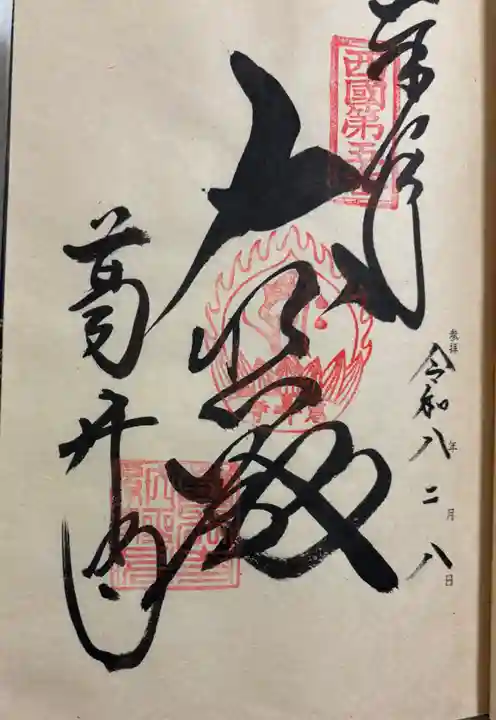 奉拝
西國第五番
参拝 令和八年二月八日
大悲殿
葛井寺
葛井寺